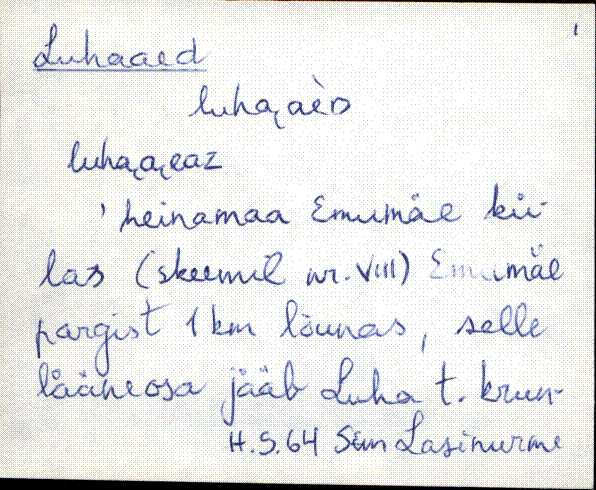 1
Luhaaed
luha͔aèᴅ
luha͔a͔eaz
' heinamaa Emumäe kü-
las (skeemil nr. VIII) Emumäe
pargist 1 km lõunas, selle
lääneosa jääb Luha t. krun-
H.S.64 Sim Lasinurme